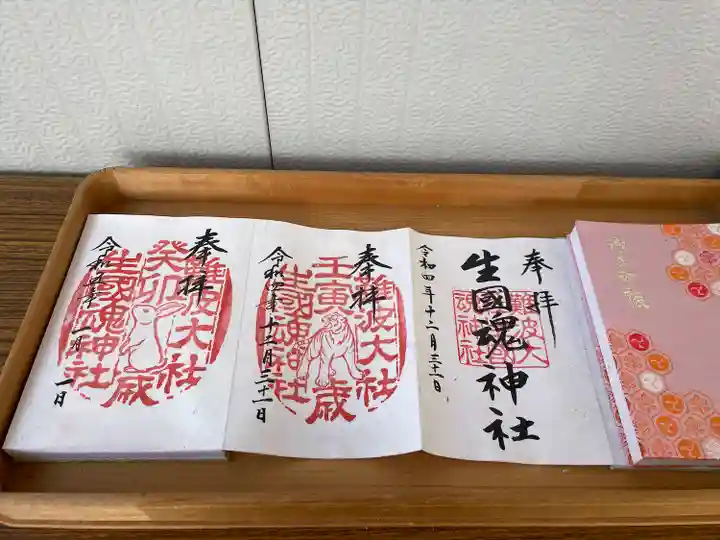 奉拝
生國魂神社
難波大社
生國魂神社
令和四年十二月三十一日
奉拝
壬寅歳
難波大社
生國魂神社
令和四年十二月三十一日
奉拝
癸卯歳
難波大社
生國魂神社
令和五年一月一日